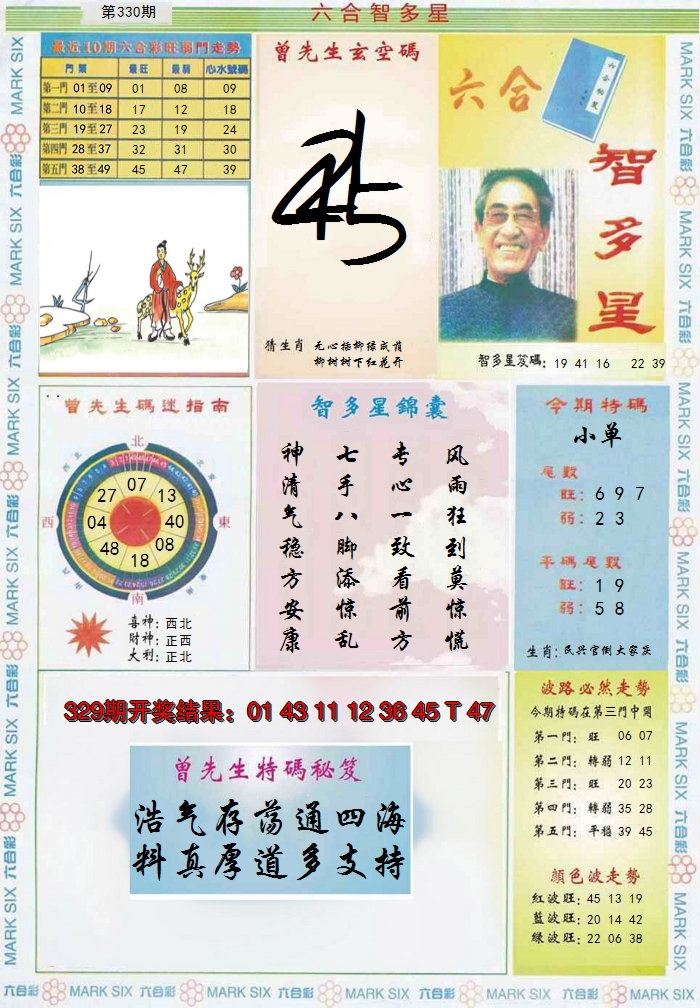 第330期
六合智多星
最近10期六合彩旺弱門走勢
門 类 最旺 最弱 心水號碼
第一門 01至09 01 08 09
第二門 10至18 17 12 18
第三門 19至27 23 19 24
第四門 28至37 32 31 30
第五門 38至49 45 47 39
曾先生玄空碼
猜生肖 无心插柳绿成荫
柳树树下红花开
六合
智多星
智多星笈碼: 19 41 16 22 39
曾先生碼迷指南
北
西
東
南
07
13
40
08
18
48
04
27
喜神: 西北
財神: 正西
大利: 正北
智多星錦囊
风雨狂到莫惊慌
专心一致看前方
七手八脚添惊乱
神清气稳方安康
今期特碼
小单
尾數
旺: 6 9 7
弱: 2 3
平碼尾數
旺: 1 9
弱: 5 8
生肖: 民兴官倒大家反
329期开奖结果: 01 43 11 12 36 45 T 47
曾先生特碼秘笈
浩气存荡通四海
料真厚道多支持
波路必然走勢
今期特碼在第三門中開
第一門: 旺 06 07
第二門: 轉弱 12 11
第三門: 旺 20 23
第四門: 轉弱 35 28
第五門: 平穩 39 45
顏色波走勢
紅波旺: 45 13 19
藍波旺: 20 14 42
綠波旺: 22 06 38
六合彩 MARK SIX 六合彩 MARK SIX 六合彩 MARK SIX 六合彩 MARK SIX 六合彩